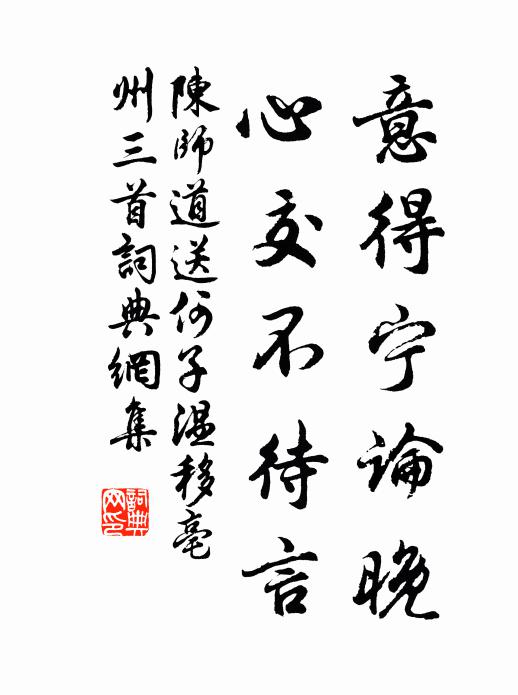 意得宁論晚
心交不待言
陳師道送何子温移亳
州三首詞典網集
詞典網印